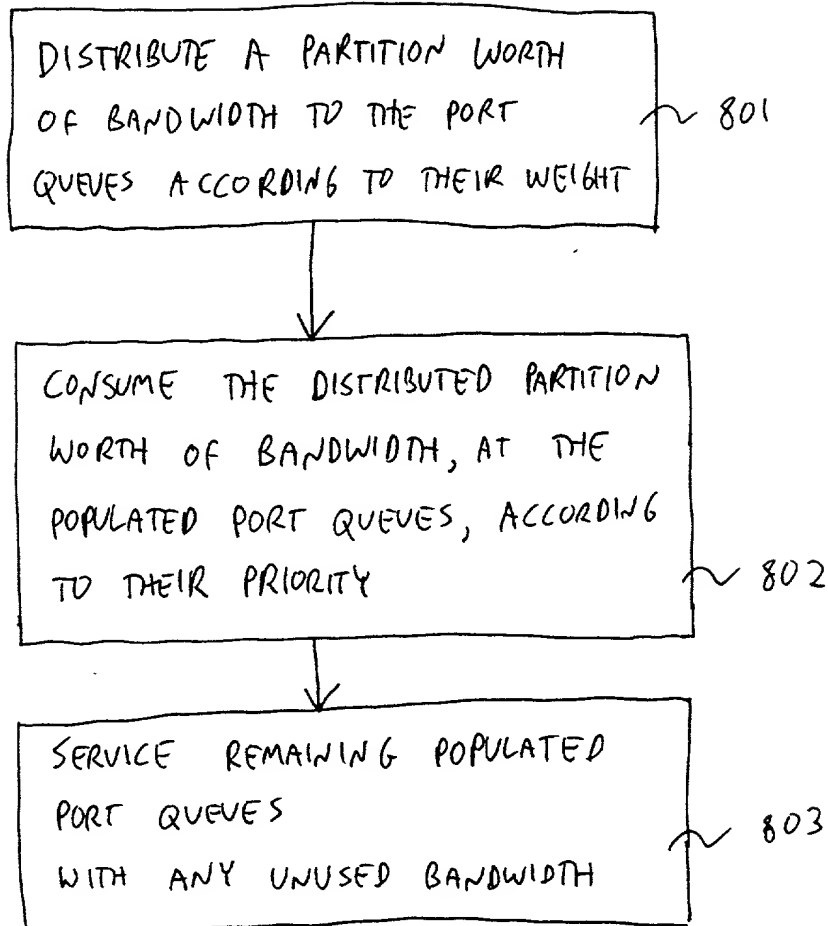 DISTRIBUTE A PARTITION WORTH
OF BANDWIDTH TO THE PORT
QUEUES ACCORDING TO THEIR WEIGHT
801
CONSUME THE DISTRIBUTED PARTITION
WORTH OF BANDWIDTH, AT THE
POPULATED PORT QUEUES, ACCORDING
TO THEIR PRIORITY
802
SERVICE REMAINING POPULATED
PORT QUEUES
WITH ANY UNUSED BANDWIDTH
803